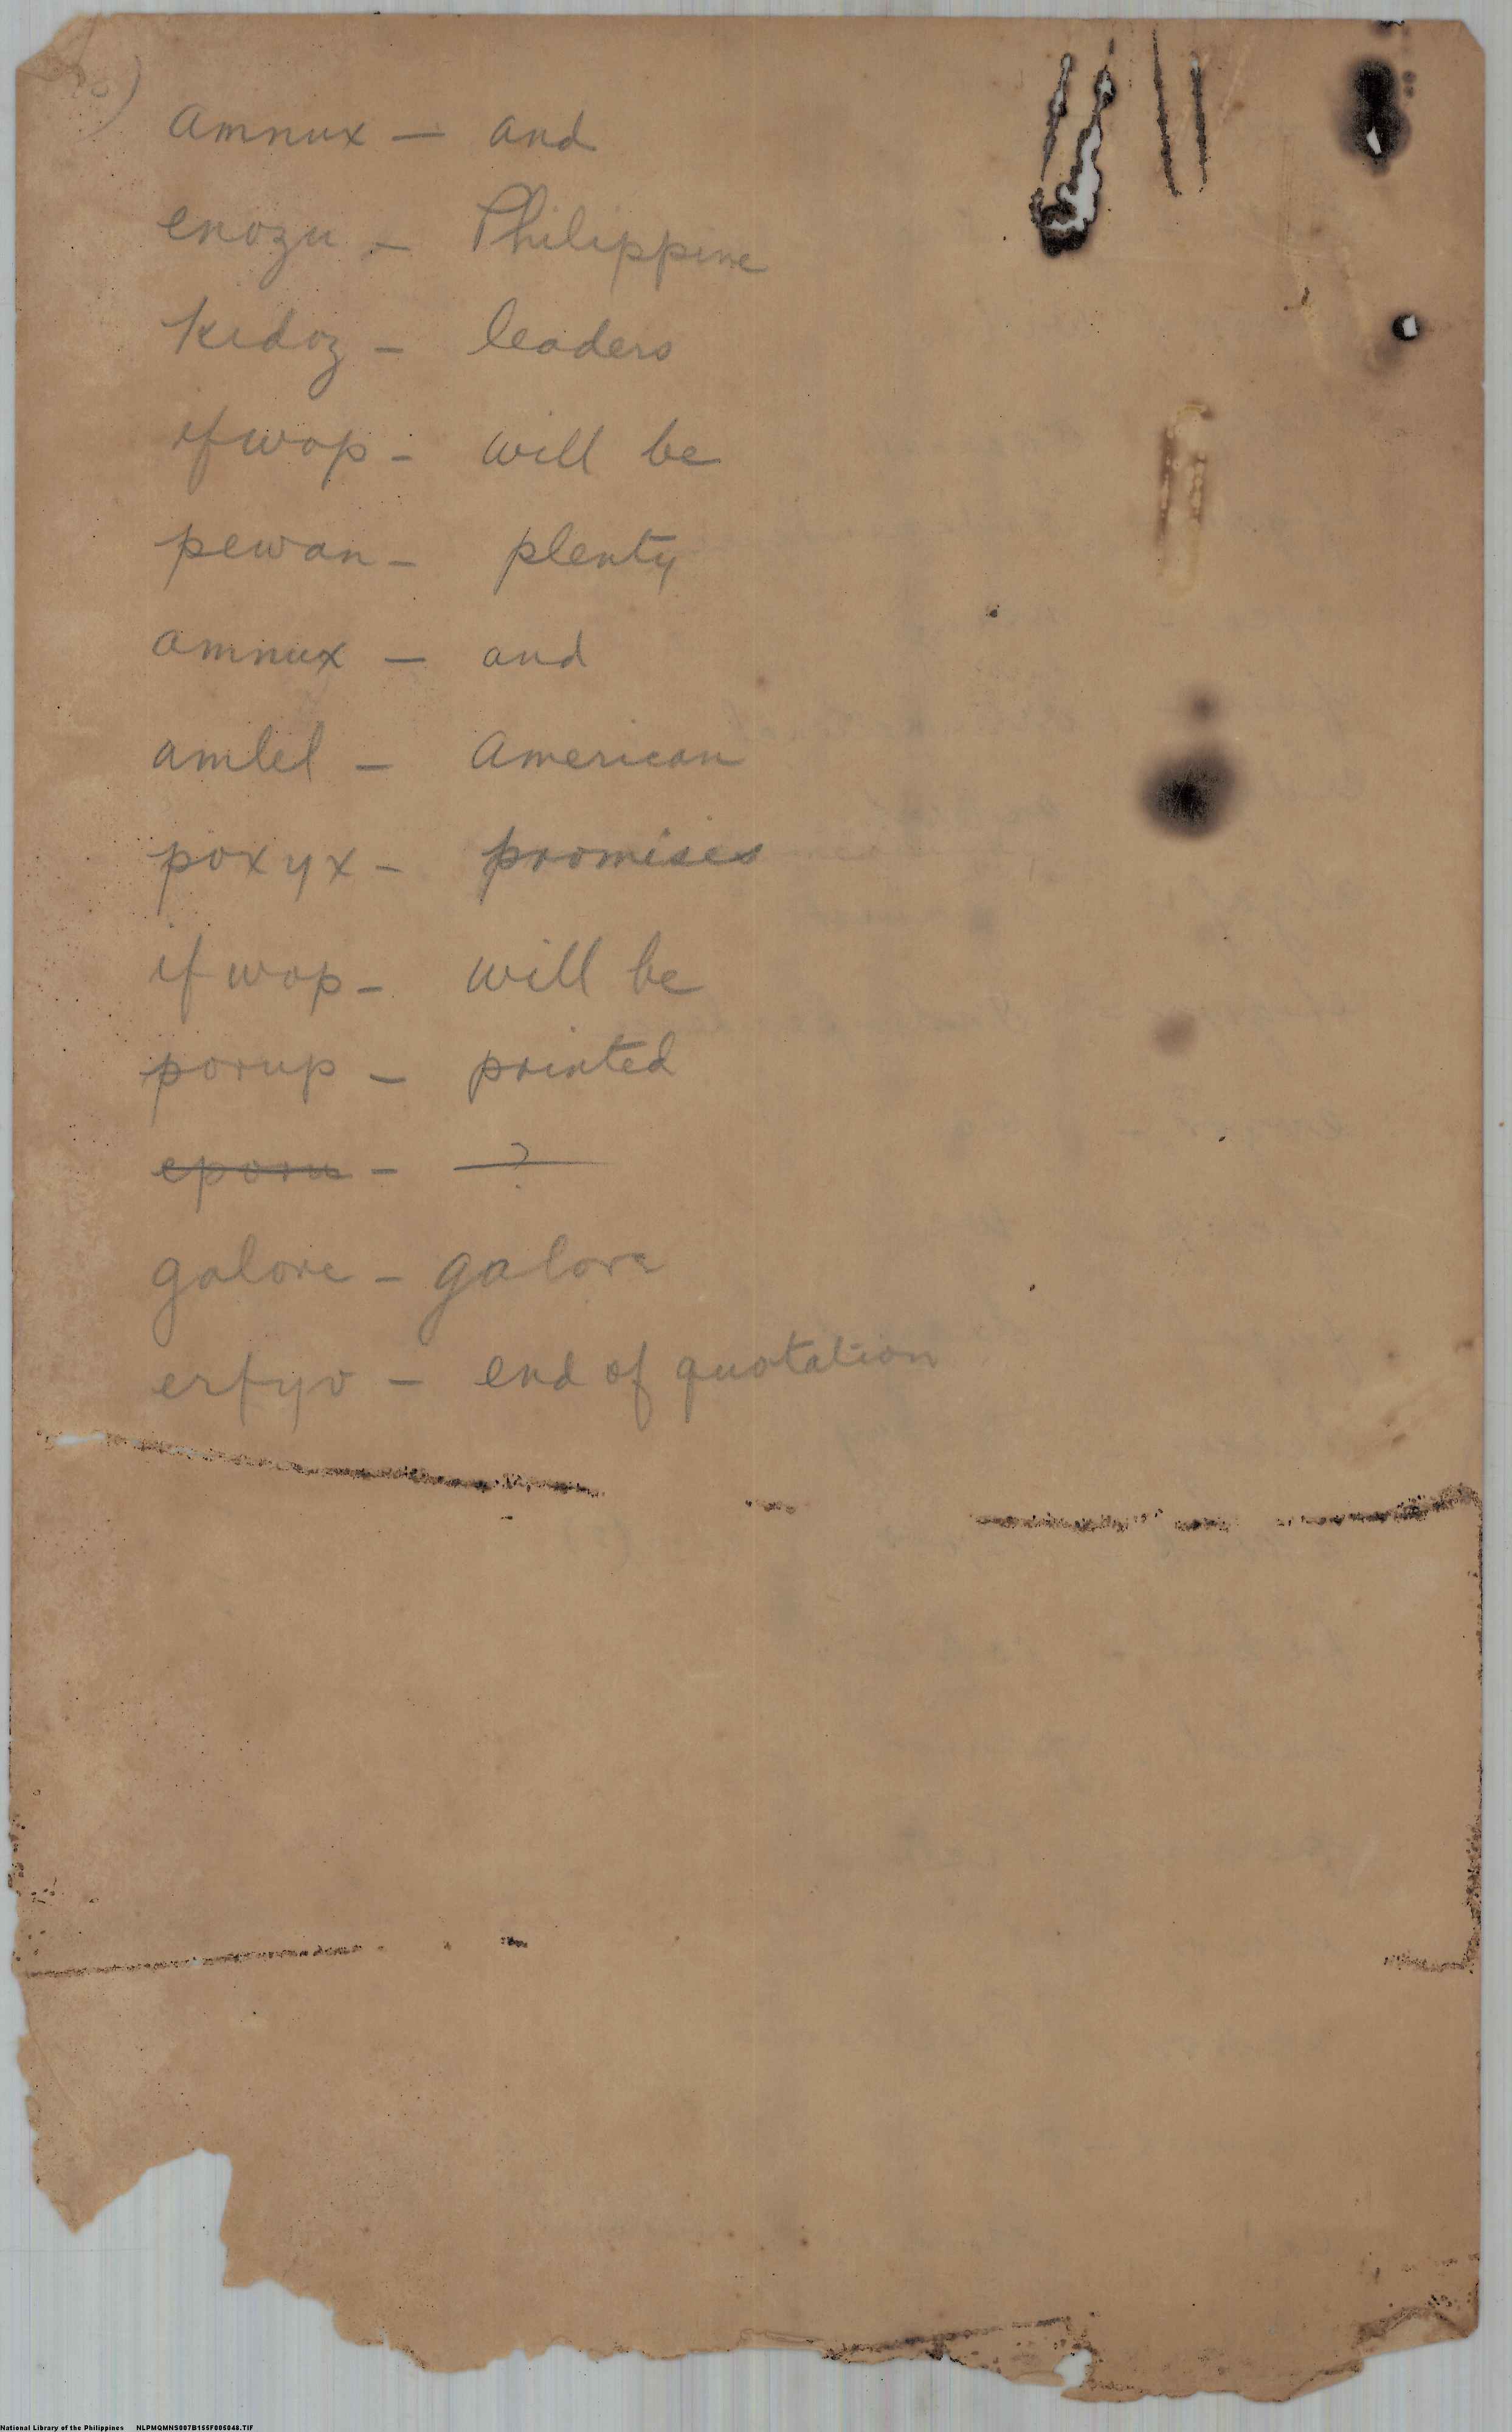 amnux — and
enozu — Philippine
kidoz — leaders
ifwop - will be
pewan - plenty
amnux — and
amlel — American
poxyx - promises
ifwop - will be
porup — printed
eporu - ?
galore - galore
erfyv — end of quotation
National Library of the Philippines NLPMQMNS007B155F005048.TIF